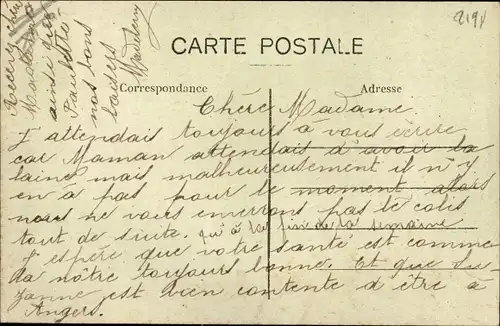 2191
CARTE POSTALE
Correspondance
Adresse
Chère Madame
J'attendais toujours à vous écrire
car Maman attendais d'avoir la
laine mais malheureusement il n'y
en à pas pour le moment alors
nous ne vous enverrons pas le colis
tout de suite. qu'à la fin de la semaine
J'espère que votre santé est comme
la nôtre toujours bonne. Et que Su
zanne est bien contente d'être à
Angers.
Recevez
Madame
ainsi que
Paulette
nos bons
baisers